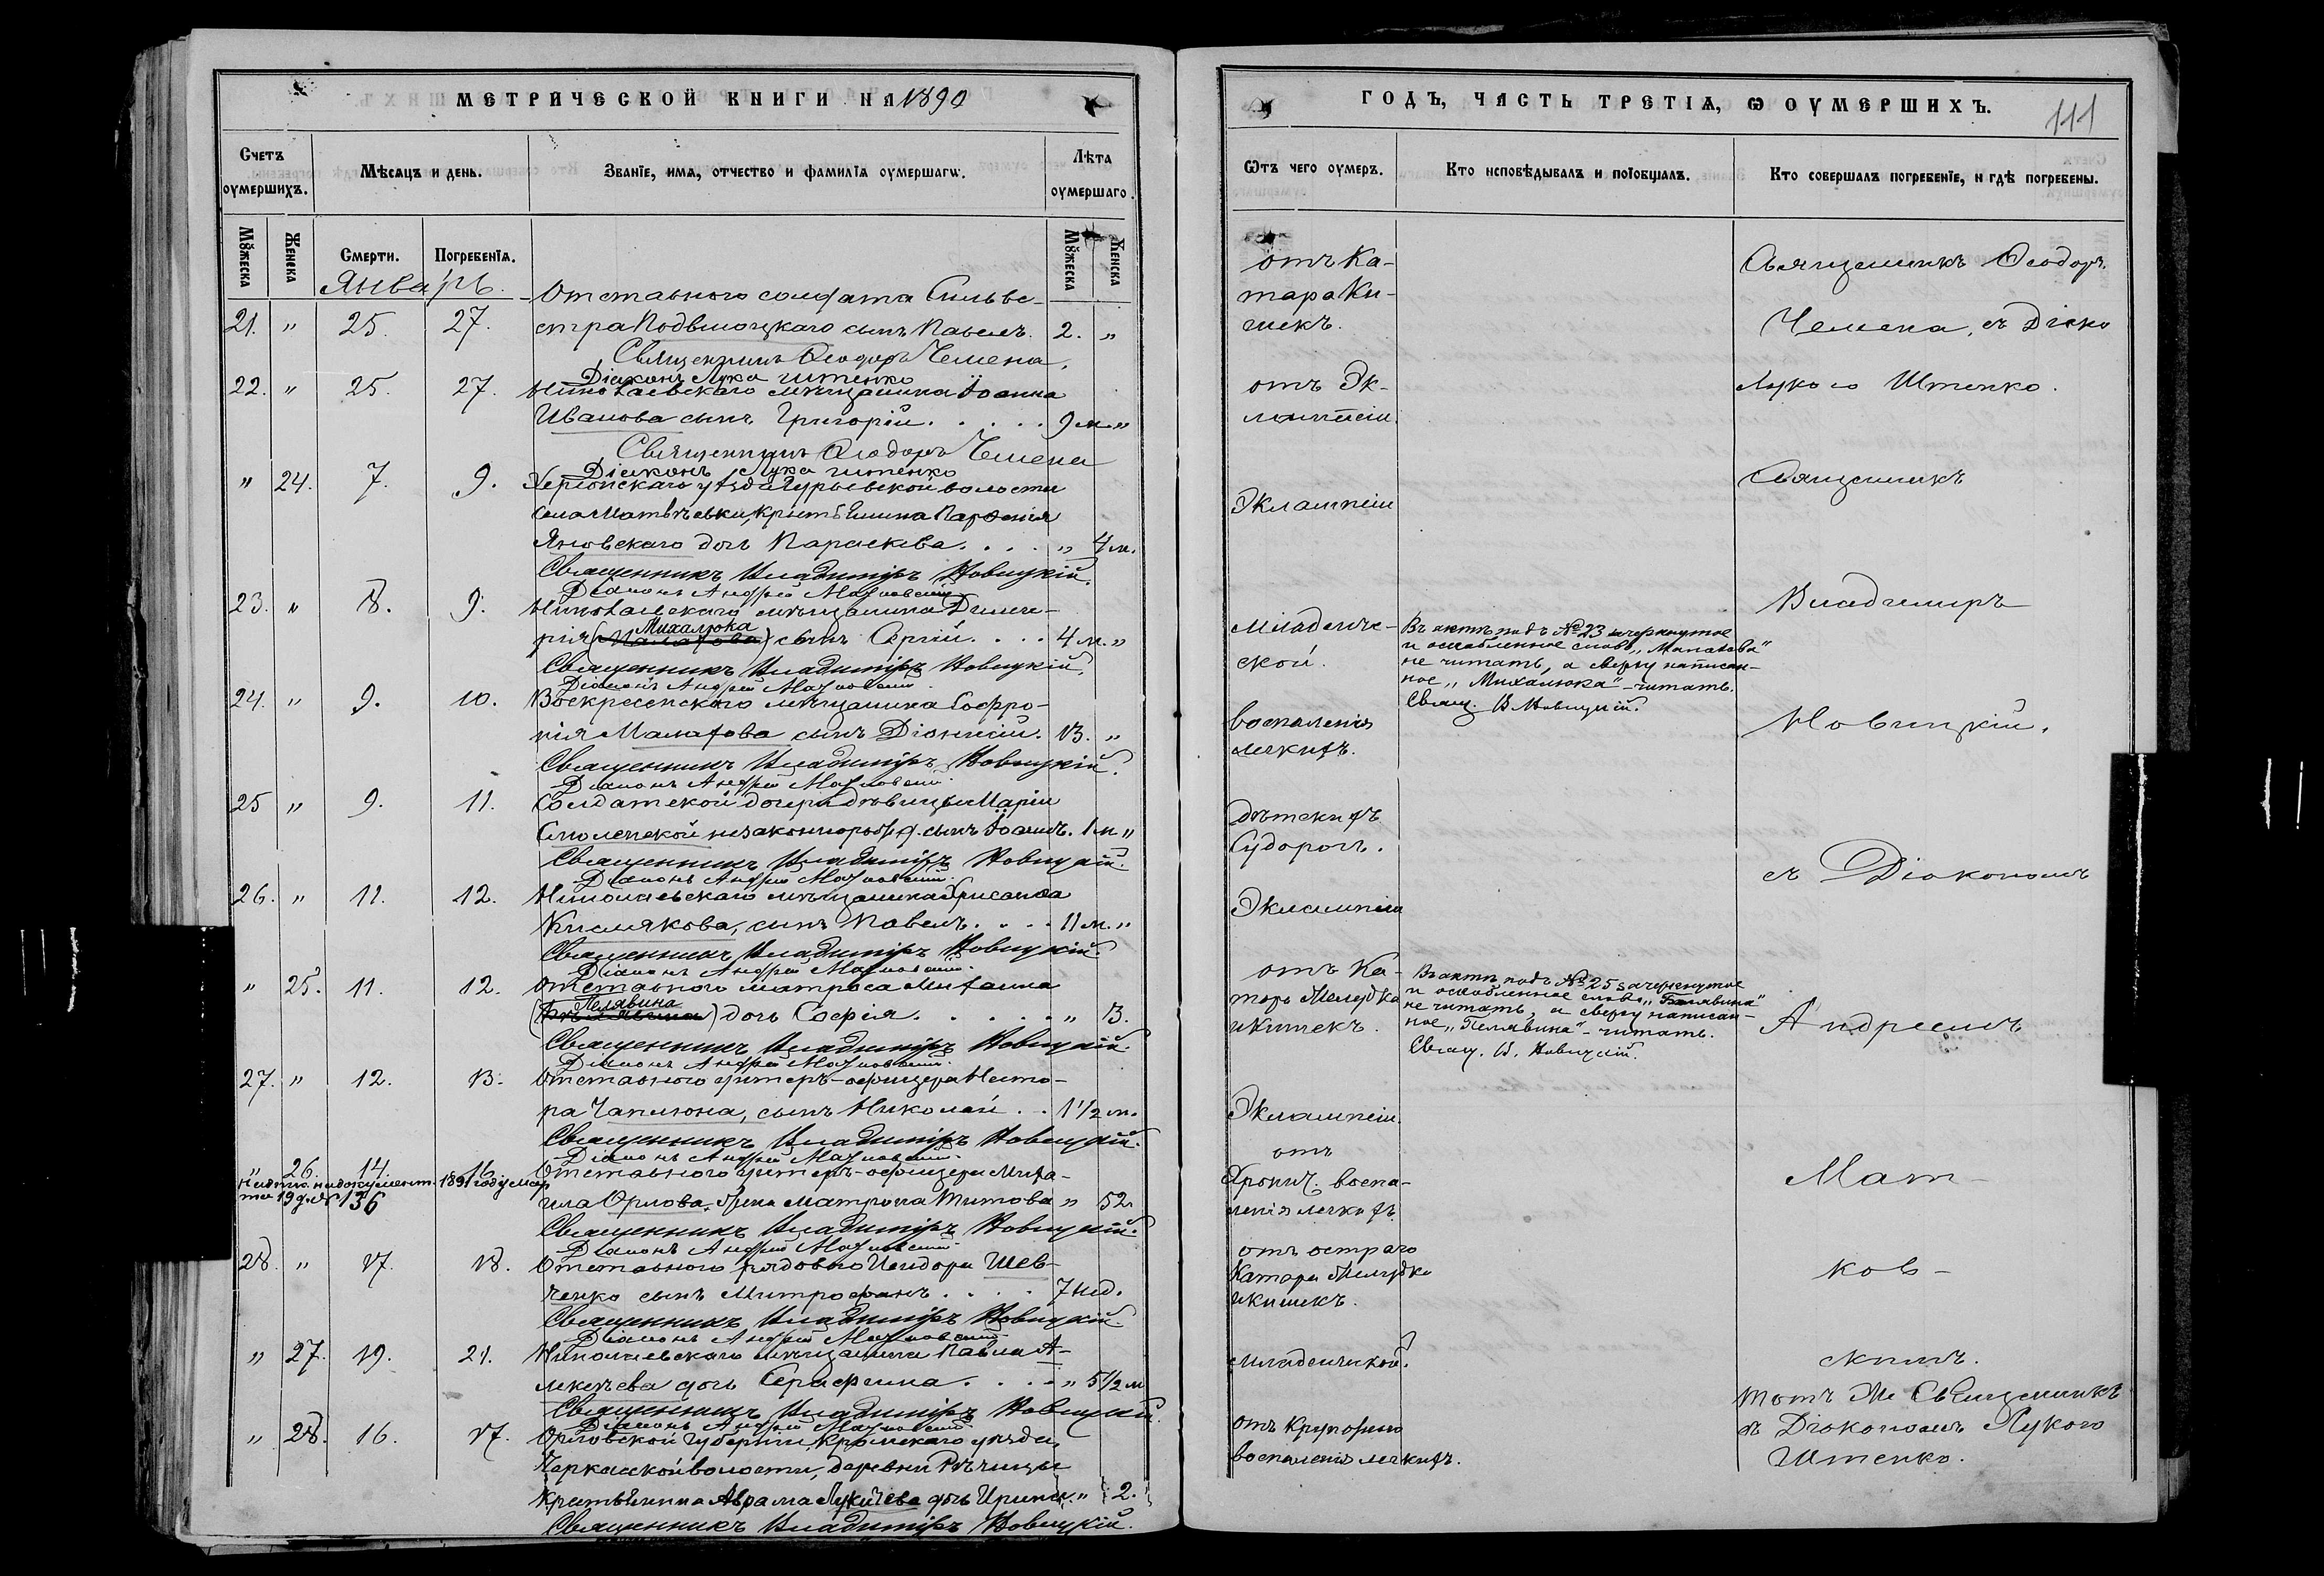 МЕТРИЧЕСКОЙ КНИГИ НА 1890
Счетъ оумершихъ.
Мѣсяцъ и день.
Званїе, имѧ, отчество и фамилїѧ оумершагѡ.
Лѣта оумершаго.
Мꙋжеска
Женска
Смерти.
Погребенїѧ.
Мꙋжеска
Женска
Январь.
Отставного солдата Сильве-
21. " 25. 27. стра Подвысоцкаго сынъ Павелъ. 2. "
Священникъ Ѳеодоръ Чемена.
Діаконъ Лука Штенко
22. " 25. 27. Николаевскаго мѣщанина Іоанна
Иванова сынъ Григорій. 9 м. "
Священникъ Ѳеодоръ Чемена
Діаконъ Лука Штенко
" 24. 7. 9. Херсонскаго уѣзда Гурьевской волости
села Матвѣевки, крестьянина Парѳенія
Яновскаго дочь Параскева. " 4 м.
Священникъ Владиміръ Новицкій.
Діаконъ Андрей
23. " 8. 9. Николаевскаго мѣщанина Димит-
рія (Михалюка) сынъ Сергій. 4 м. "
Священникъ Владиміръ Новицкій.
Діаконъ Андрей
24. " 9. 10. Воскресенскаго мѣщанина Софро-
нія Малахова сынъ Діонисій. 13. "
Священникъ Владиміръ Новицкій.
Діаконъ Андрей
25 " 9. 11. Солдатской дочери дѣвицы Маріи
Смоленской незаконнорожд. сынъ Іоаннъ. 1 м "
Священникъ Владиміръ Новицкій.
Діаконъ Андрей
26. " 11. 12. Николаевскаго мѣщанина Хрисанѳа
Кислякова, сынъ Павелъ. 11 м. "
Священникъ Владиміръ Новицкій.
Діаконъ Андрей
" 25. 11. 12. Отставного матроса Михаила
(Пелявина) дочь Софія. " 13.
Священникъ Владиміръ Новицкій.
Діаконъ Андрей
27. " 12. 13. Отставного унтеръ-офицера Несто-
ра Чаплюна, сынъ Николай. 1 1/2 м.
Священникъ Владиміръ Новицкій.
Діаконъ Андрей
" 26. 14. 16. Отставного унтеръ-офицера Миха-
1891 году мар
та 19 д. № 136
ила Орлова, жена Матрона Титова " 52
Священникъ Владиміръ Новицкій.
Діаконъ Андрей
28. " 17. 18. Отставного рядового Исидора Шев-
ченко сынъ Митрофанъ. 7 нед.
Священникъ Владиміръ Новицкій.
Діаконъ Андрей
" 27. 19. 21. Николаевскаго мѣщанина Павла А-
лексѣева дочь Серафима. " 5 1/2 м
Священникъ Владиміръ Новицкій.
Діаконъ Андрей
" 28. 16. 17. Орловской губерніи, Кромскаго уѣзда,
Черкасской волости, деревни Рѣчицы
крестьянина Аврама Лукичева дочь Ирина. " 2.
Священникъ Владиміръ Новицкій.
ГОДЪ, ЧАСТЬ ТРЕТІѦ, Ѡ ОУМЕРШИХЪ.
111
Ѿтъ чего оумеръ.
Кто исповѣдывалъ и пріобщалъ.
Кто совершалъ погребенїе, и гдѣ погребены.
отъ Ка-
тара Ки-
шекъ.
Священникъ Ѳеодоръ
Чемена, съ Діако
отъ Эк-
лампсіи.
Лукою Штенко.
Эклампсіи
Священникъ
Владимиръ
Младенче-
ской.
Въ актѣ подъ № 23 зачеркнутое
и оскобленное слово „Малахова"
не читать, а сверху написан-
ное „Михалюка" - читать.
Свящ. В Новицкій.
воспаленія
легкихъ.
Новицкій.
Дѣтскихъ
Судорогъ.
съ Діакономъ
Эклампсіи
отъ Ка-
тара желудка
и кишекъ.
Въ актѣ подъ № 25 зачеркнутое
и оскобленное слово „Белявина"
не читать, а сверху написан-
ное „Пелявина" - читать.
Свящ. В. Новицкій.
Андреемъ
Эклампсіи.
отъ
Хронич. воспа-
ленія легкихъ.
Мат-
отъ остраго
Катара желудка
и кишекъ.
ков-
Младенческой.
скимъ.
отъ крупознаго
воспаленія легкихъ.
тотъ же Священникъ
съ Діакономъ Лукою
Штенко.